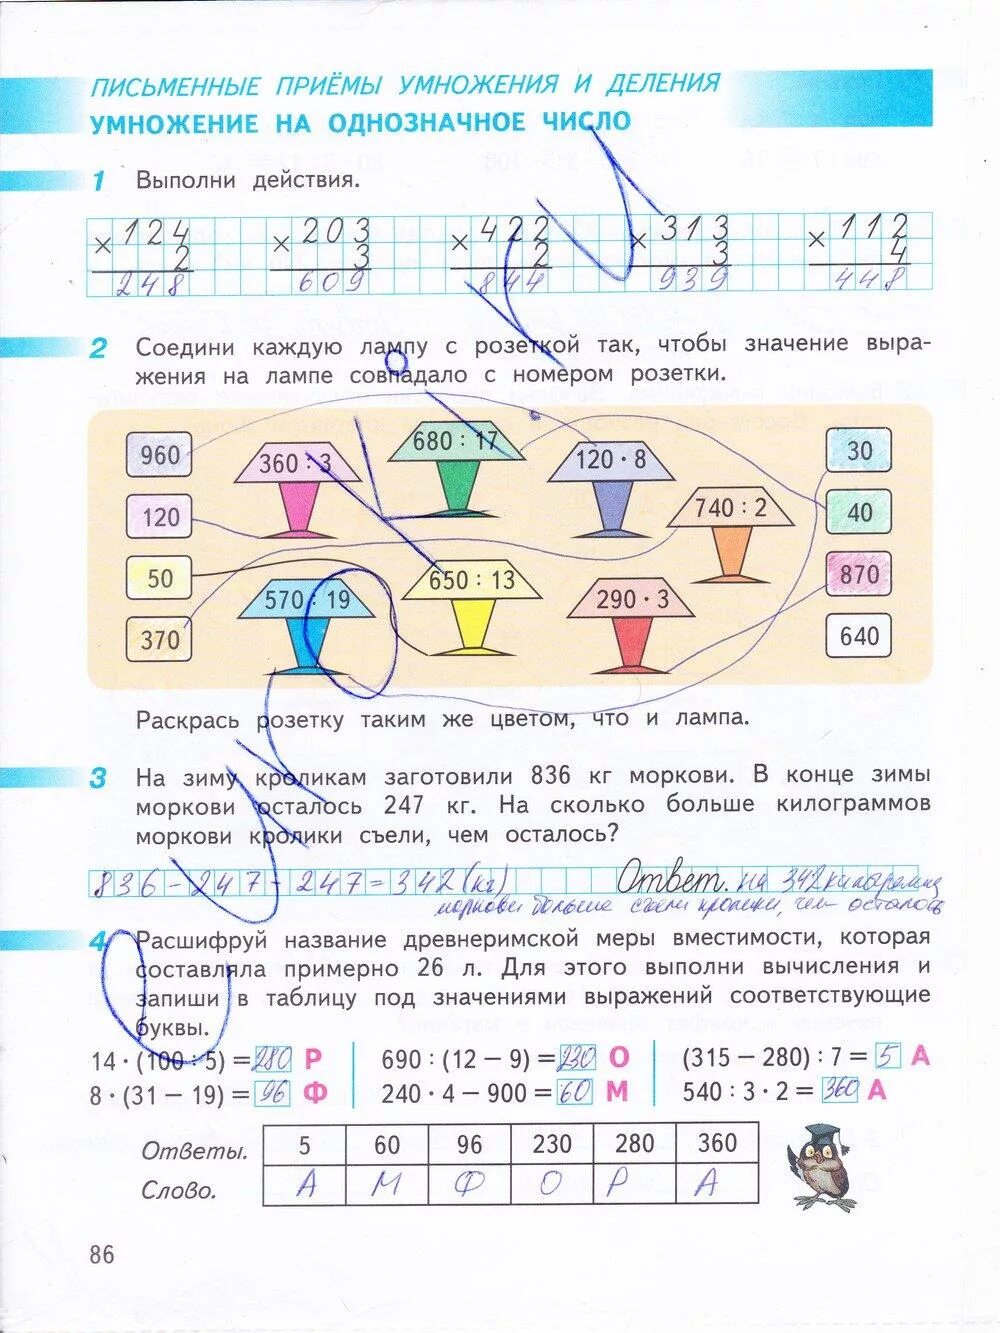 ПИСЬМЕННЫЕ ПРИЁМЫ УМНОЖЕНИЯ И ДЕЛЕНИЯ
УМНОЖЕНИЕ НА ОДНОЗНАЧНОЕ ЧИСЛО
1 Выполни действия.
× 124 × 203 × 422 × 313 × 112
2 3 2 3 4
248 609 844 939 448
2 Соедини каждую лампу с розеткой так, чтобы значение выра-
жения на лампе совпадало с номером розетки.
960 360 : 3 680 : 17 120 · 8 30
120 740 : 2 40
50 570 : 19 650 : 13 290 · 3 870
370 640
Раскрась розетку таким же цветом, что и лампа.
3 На зиму кроликам заготовили 836 кг моркови. В конце зимы
моркови осталось 247 кг. На сколько больше килограммов
моркови кролики съели, чем осталось?
836 - 247 - 247 = 342 (кг) Ответ. на 342 килограмма
моркови больше съели кролики, чем осталось
4 Расшифруй название древнеримской меры вместимости, которая
составляла примерно 26 л. Для этого выполни вычисления и
запиши в таблицу под значениями выражений соответствующие
буквы.
14 · (100 : 5) = 280 Р 690 : (12 − 9) = 230 О (315 − 280) : 7 = 5 А
8 · (31 − 19) = 96 Ф 240 · 4 − 900 = 60 М 540 : 3 · 2 = 360 А
Ответы. 5 60 96 230 280 360
Слово. А М Ф О Р А
86